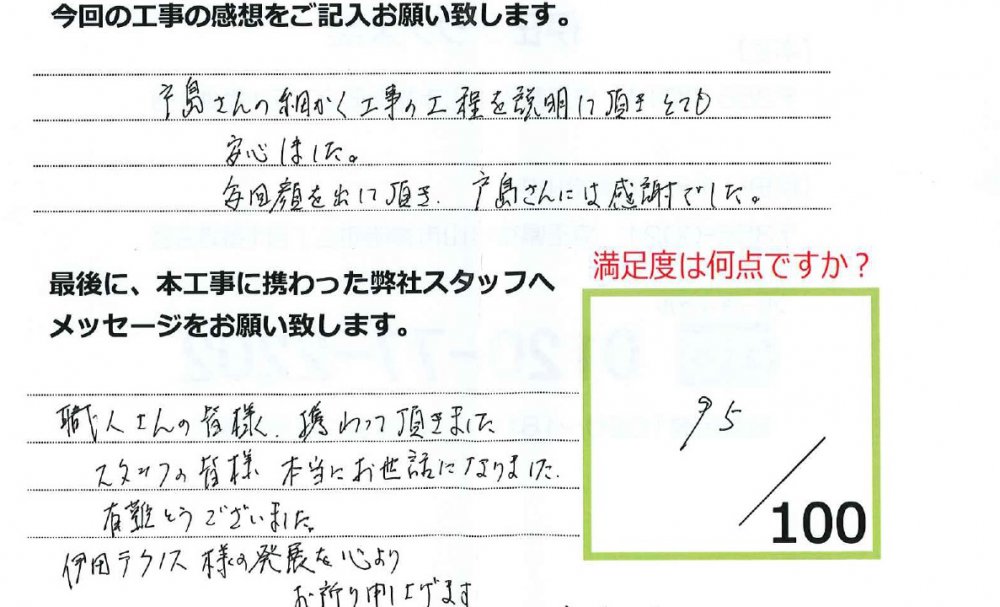 今回の工事の感想をご記入お願い致します。
戸島さんの細かく工事の工程を説明して頂きとても
安心しました。
毎回顔を出して頂き、戸島さんには感謝でした。
最後に、本工事に携わった弊社スタッフへ
メッセージをお願い致します。
満足度は何点ですか？
95
100
職人さんの皆様、携わって頂きました
スタッフの皆様 本当にお世話になりました。
有難とうございました。
伊田テクノス様の発展を心より
お祈り申し上げます